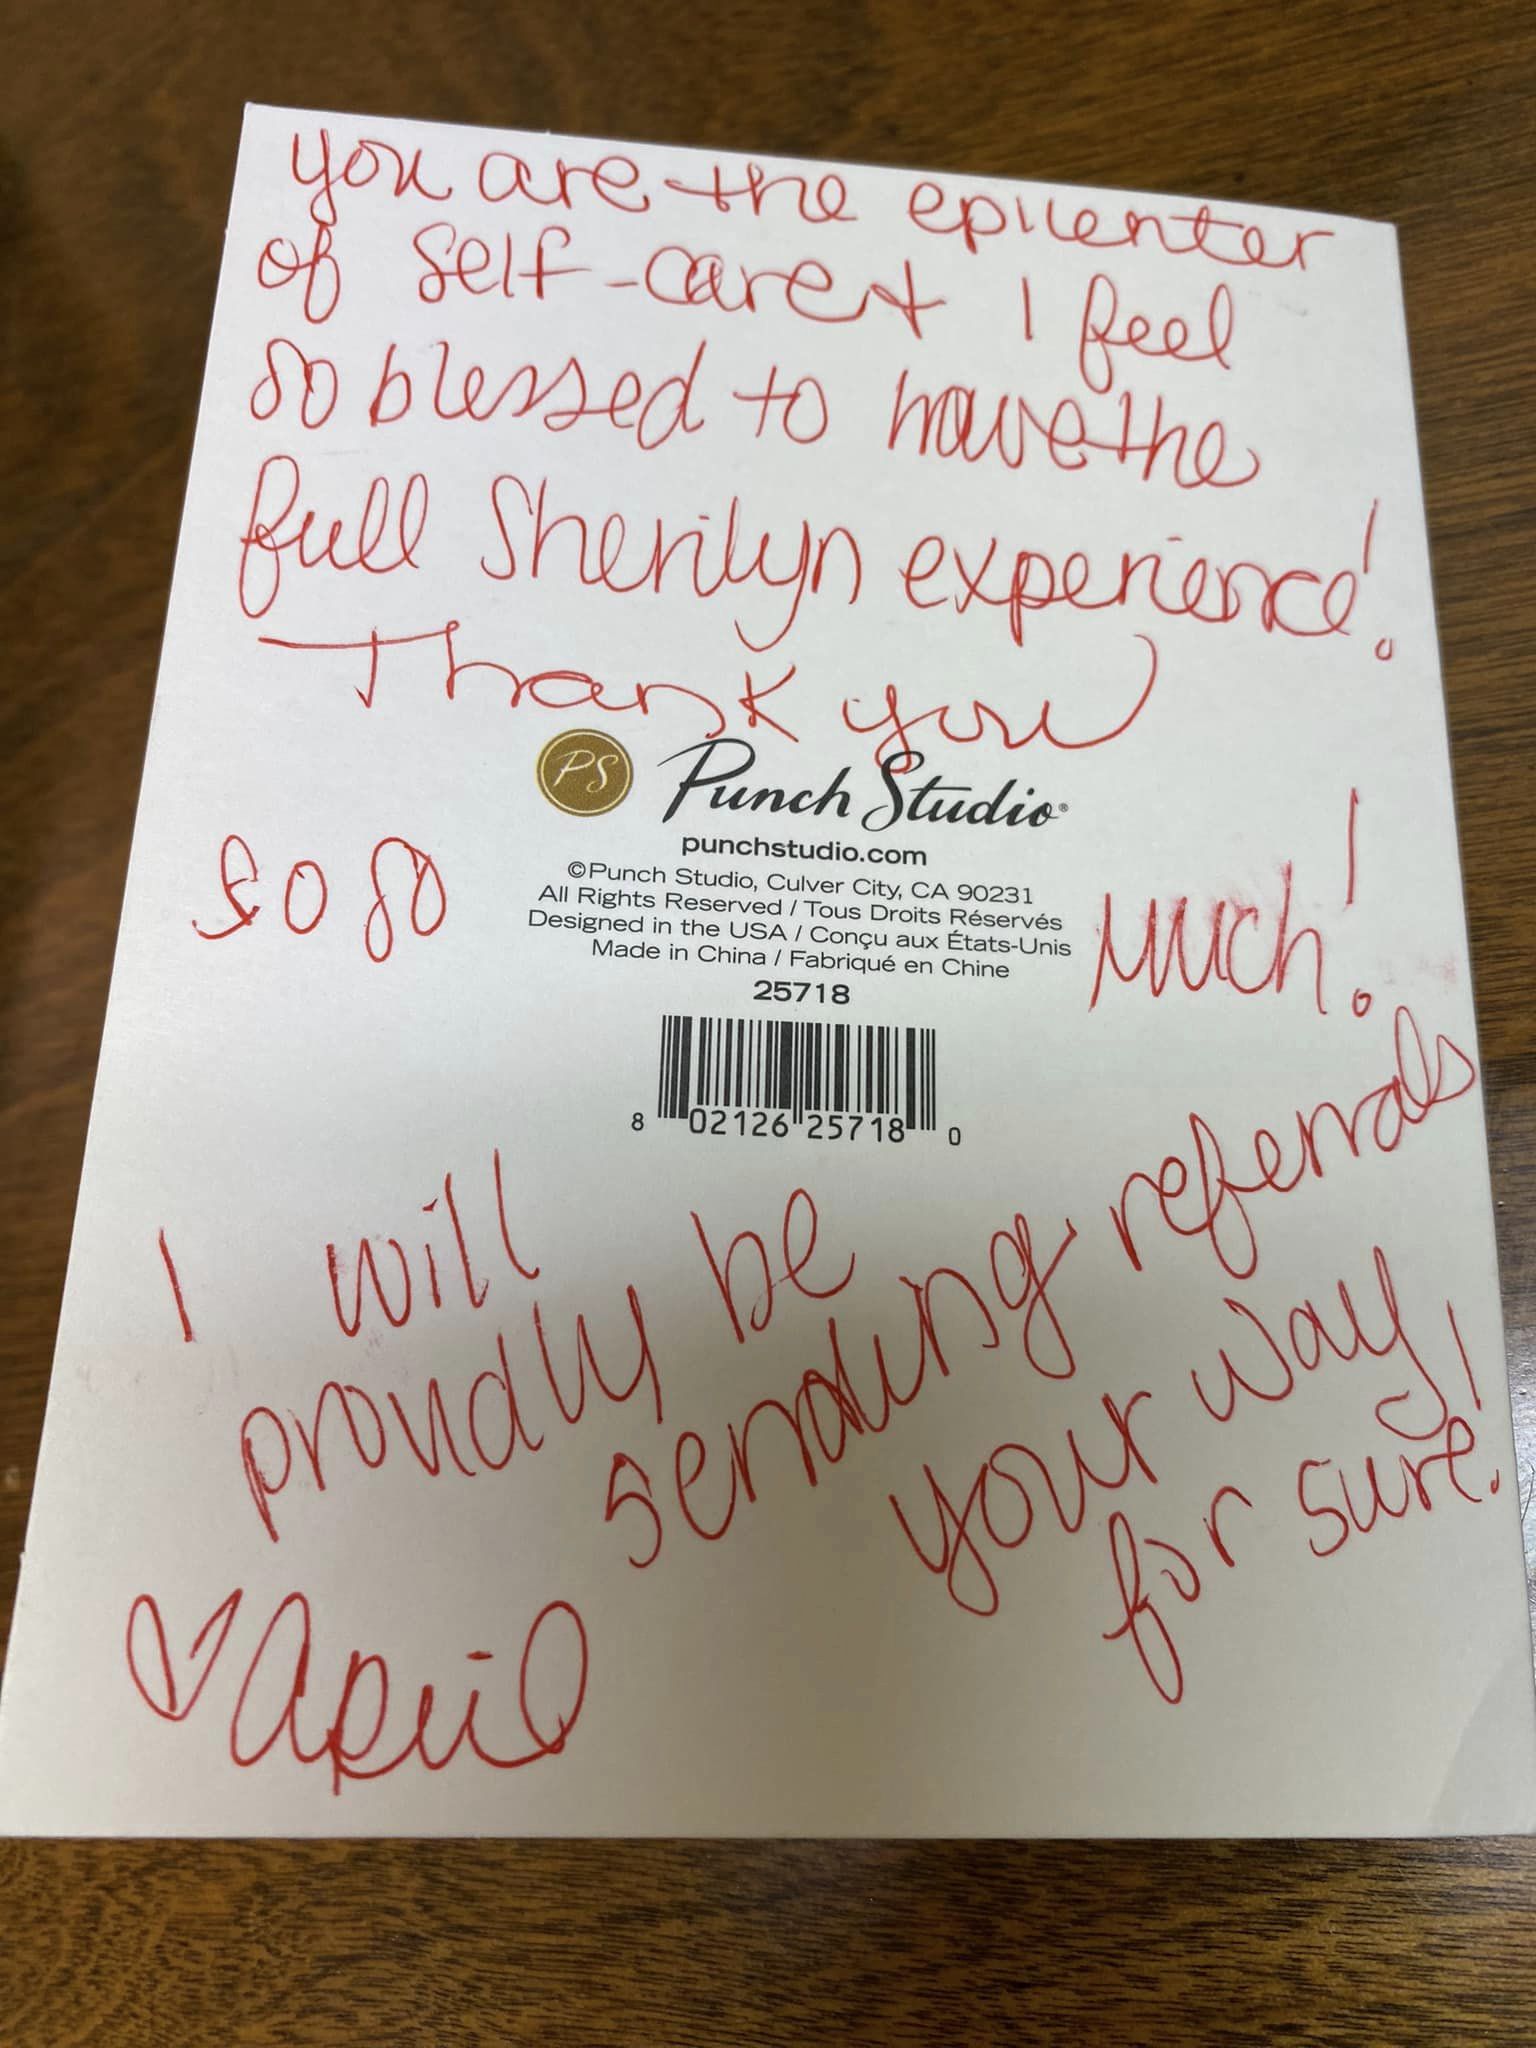 you are the epicenter
of self-care + I feel
so blessed to have the
full Sherilyn experience!
Thank you
PS Punch Studio®
punchstudio.com
©Punch Studio, Culver City, CA 90231
All Rights Reserved / Tous Droits Réservés
Designed in the USA / Conçu aux États-Unis
Made in China / Fabriqué en Chine
25718
so so much!
8 02126 25718 0
I will
proudly be
sending referrals
your way
for sure!
♡ April